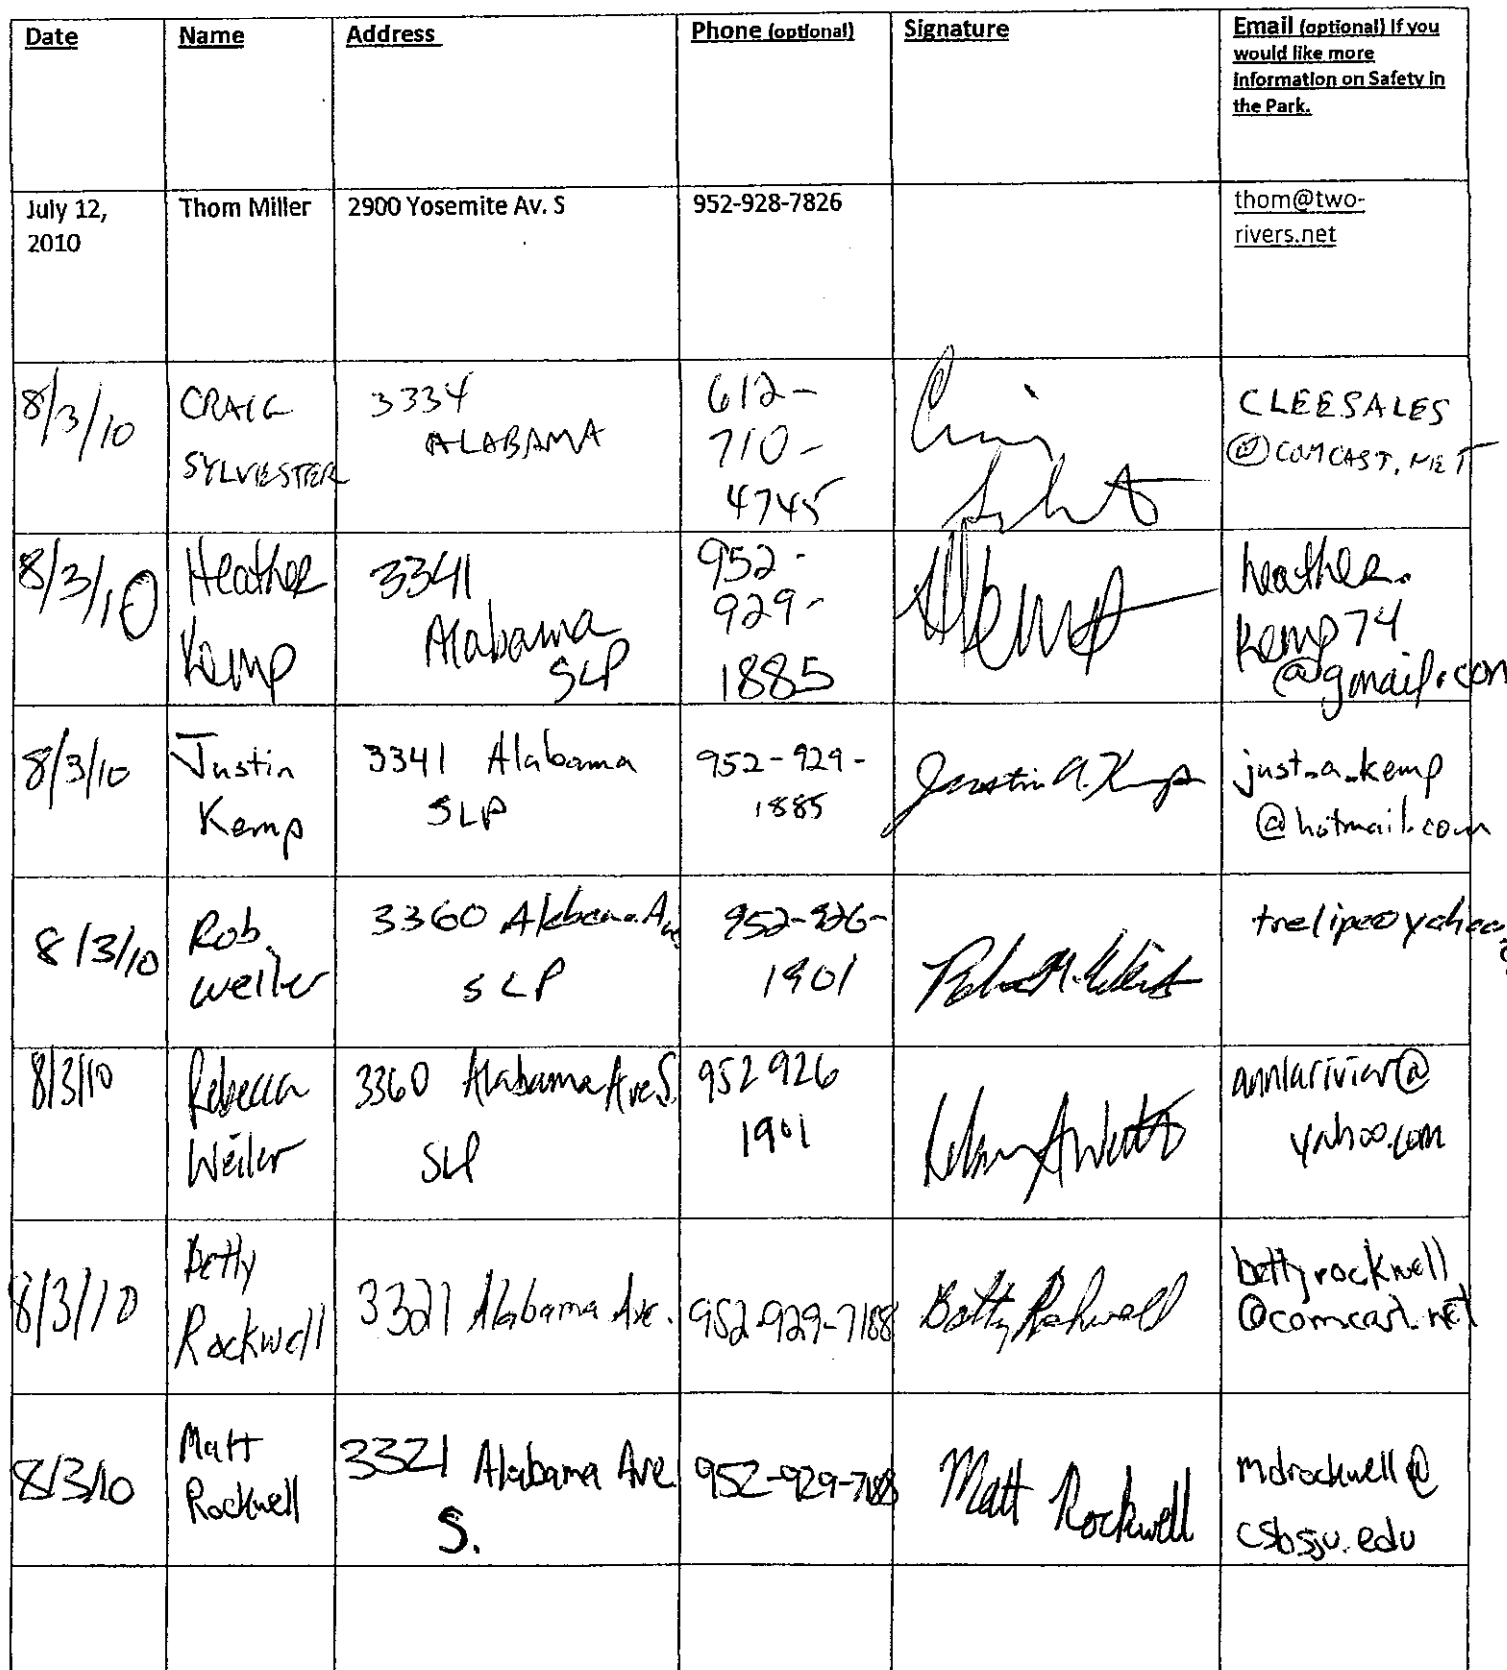 Date
Name
Address
Phone (optional)
Signature
Email (optional) If you
would like more
information on Safety in
the Park.
July 12,
2010
Thom Miller
2900 Yosemite Av. S
952-928-7826
thom@two-
rivers.net
8/3/10
CRAIG
SYLVESTER
3334
ALABAMA
612-
710-
4745
CLEESALES
@COMCAST.NET
8/3/10
Heather
Kemp
3341
Alabama
SLP
952-
929-
1885
HKemp
heather.
kemp74
@gmail.com
8/3/10
Justin
Kemp
3341 Alabama
SLP
952-929-
1885
Justin A. Kemp
just_a_kemp
@hotmail.com
8/3/10
Rob
Weiler
3360 Alabama Ave
SLP
952-926-
1901
8/3/10
Rebecca
Weiler
3360 Alabama Ave S.
SLP
952 926
1901
annlarivier@
yahoo.com
8/3/10
Betty
Rockwell
3321 Alabama Ave.
952-929-7188
Betty Rockwell
bettyrockwell
@comcast.net
8/3/10
Matt
Rockwell
3321 Alabama Ave
S.
952-929-7188
Matt Rockwell
mdrockwell@
csbsju.edu